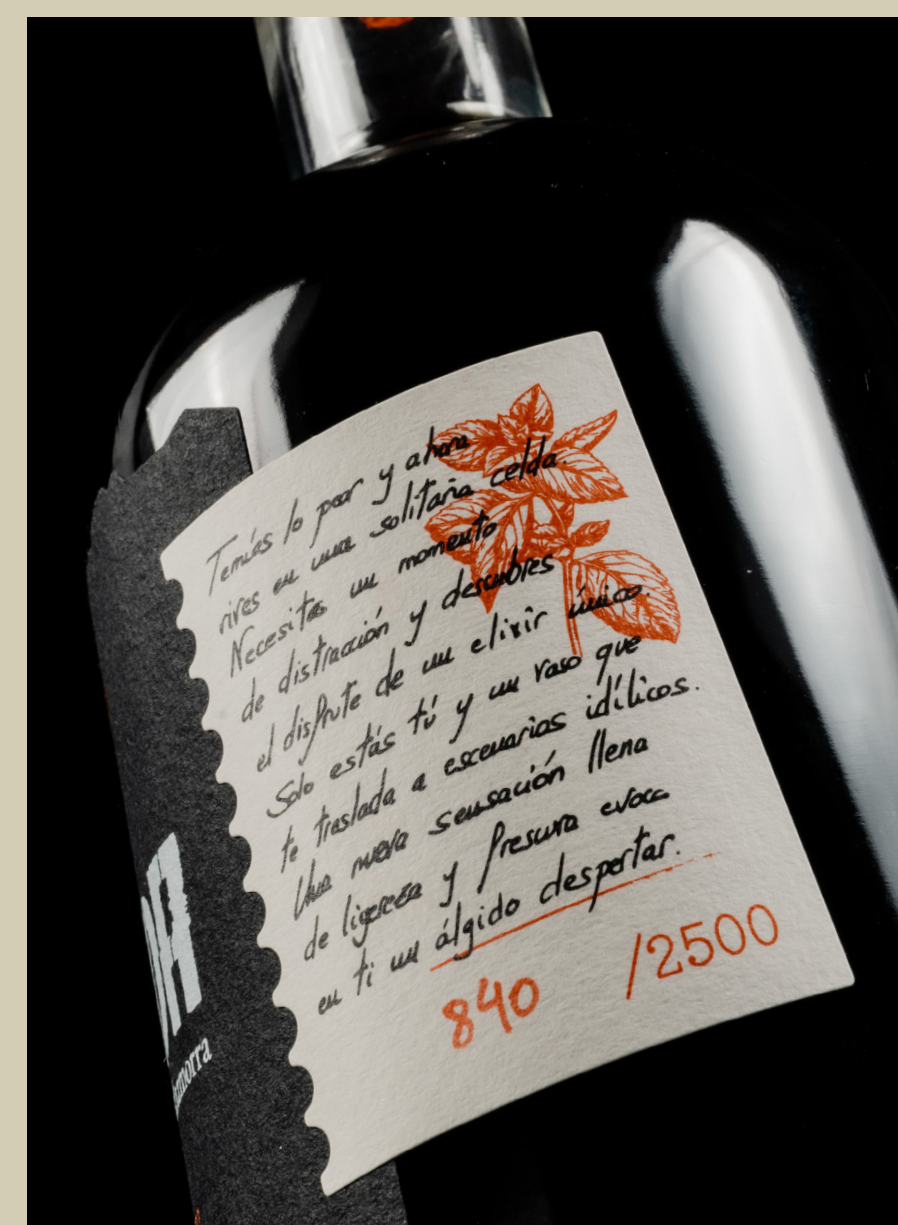 Temías lo peor y ahora
vives en una solitaria celda.
Necesitas un momento
de distracción y descubres
el disfrute de un elixir único.
Solo estás tú y un vaso que
te traslada a escenarios idílicos.
Una nueva sensación llena
de ligereza y frescura evoca
en ti un álgido despertar.
840 /2500